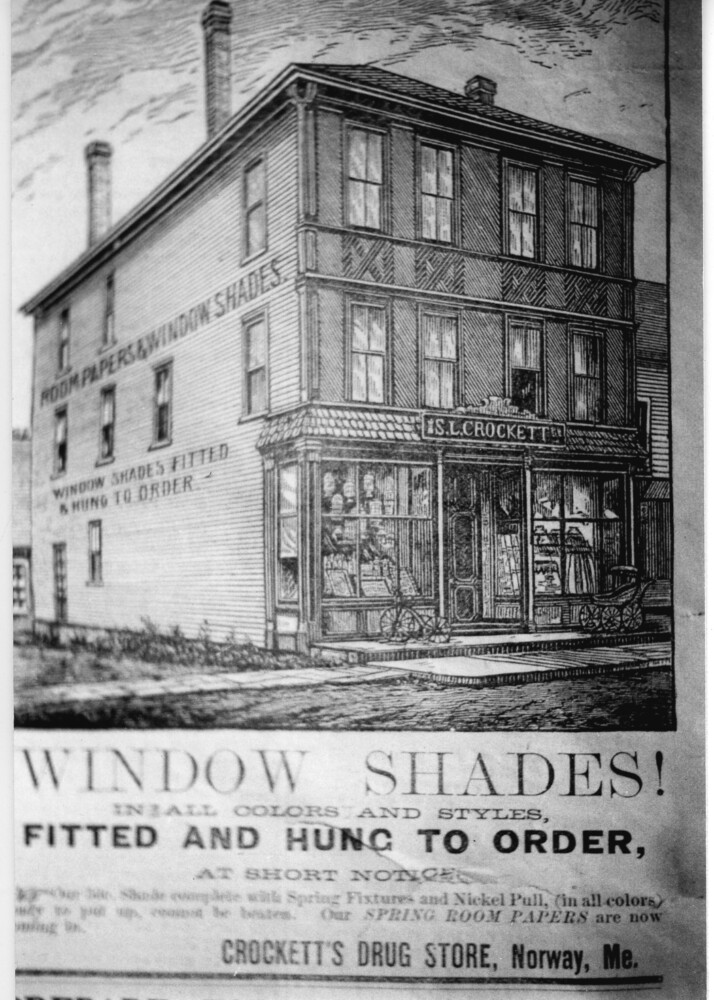 ROOM PAPERS & WINDOW SHADES.
WINDOW SHADES FITTED
& HUNG TO ORDER
S.L.CROCKETT
WINDOW SHADES!
IN ALL COLORS AND STYLES,
FITTED AND HUNG TO ORDER,
AT SHORT NOTICE.
Our Shade complete with Spring Fixtures and Nickel Pull, (in all colors)
to put up, cannot be beaten. Our SPRING ROOM PAPERS are now
in.
CROCKETT'S DRUG STORE, Norway, Me.